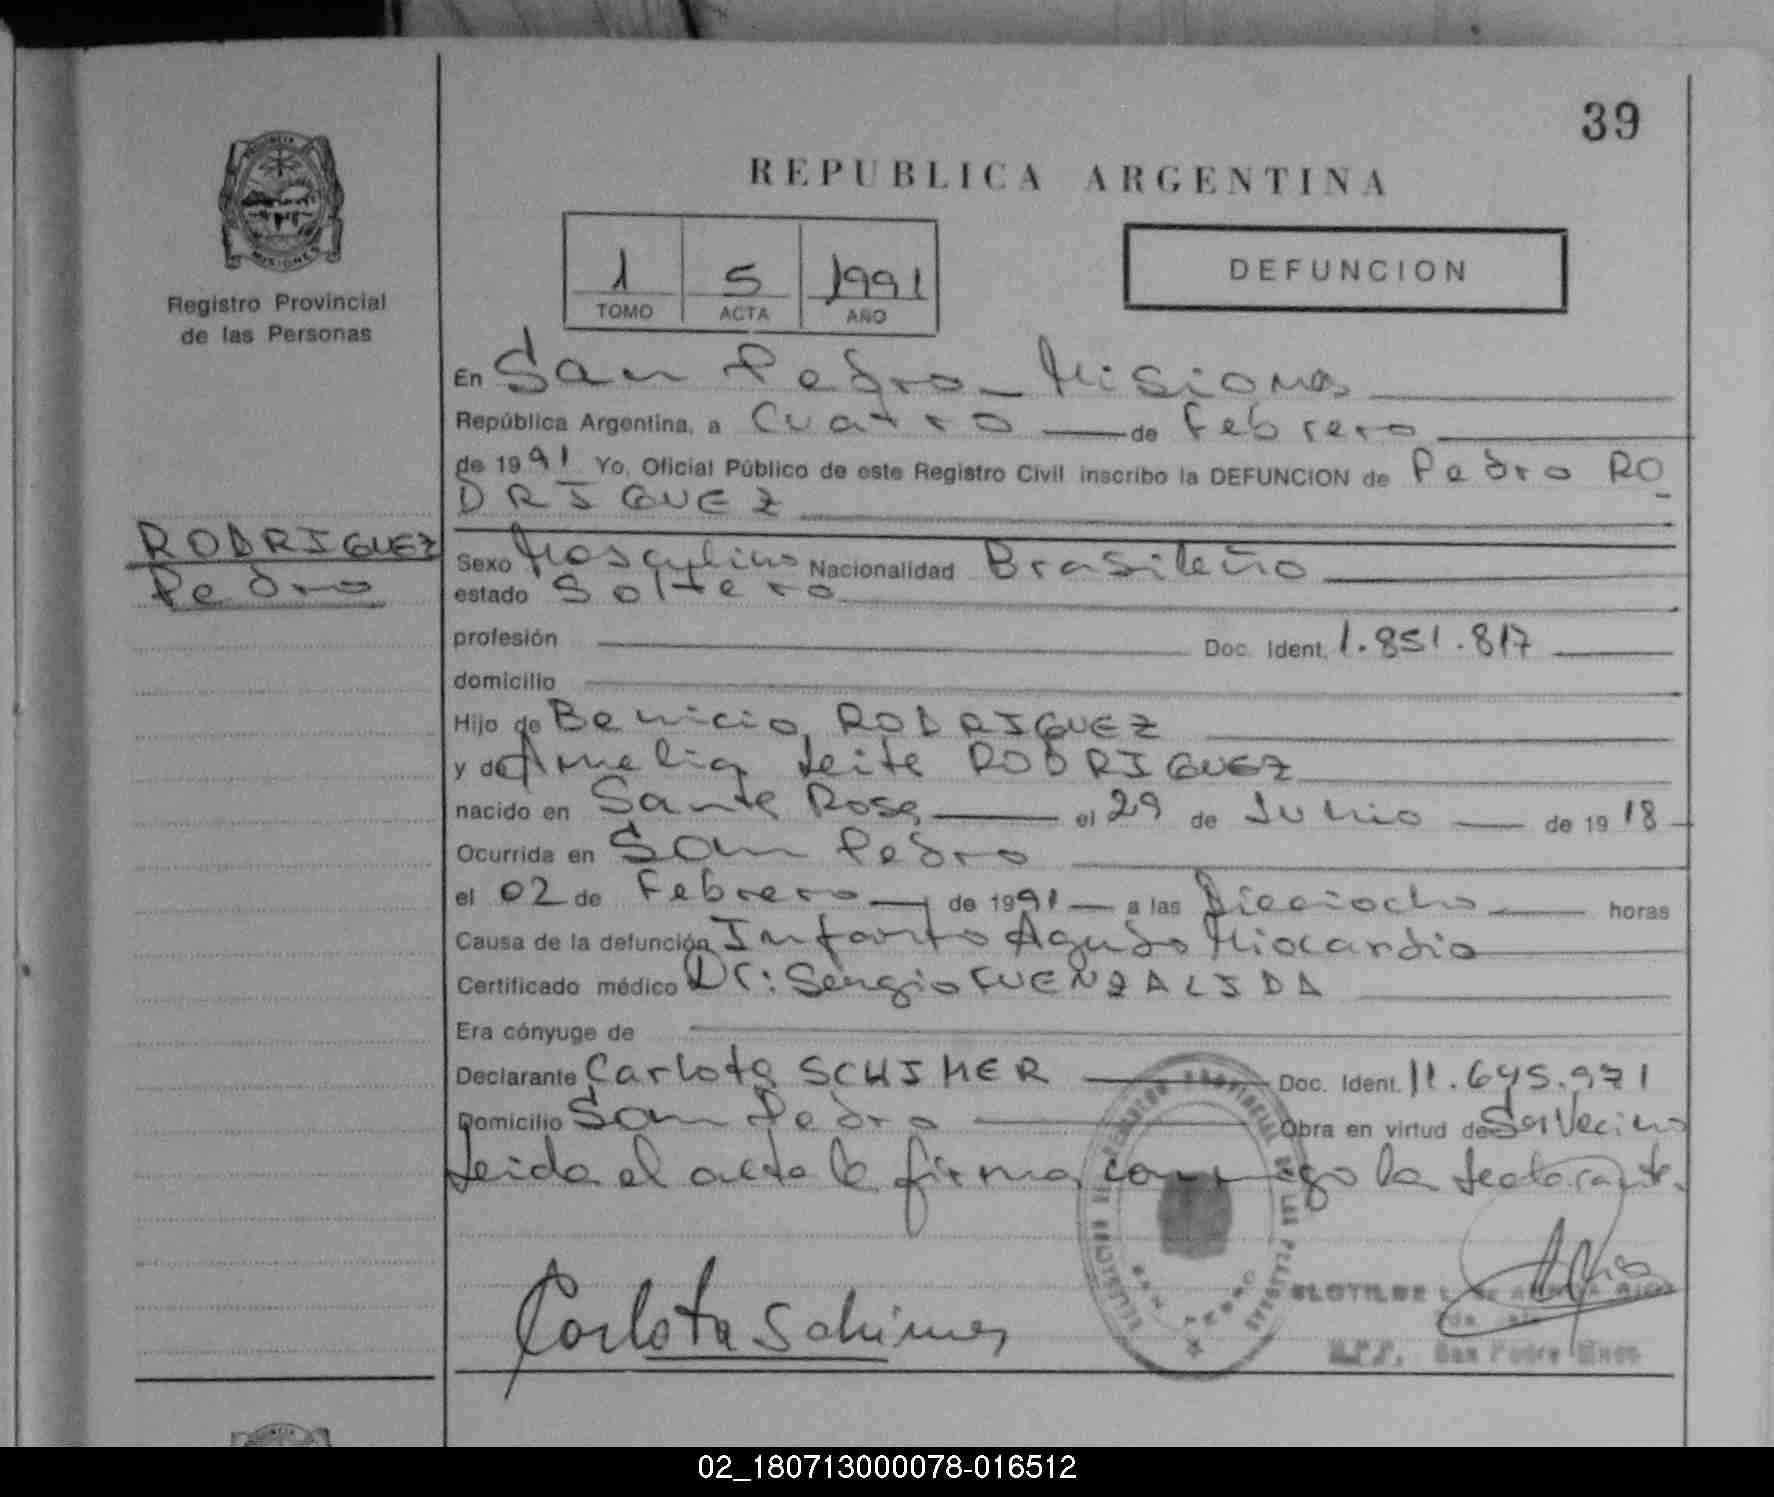 39
REPUBLICA ARGENTINA
PROVINCIA
MISIONES
Registro Provincial
de las Personas
1 5 1991
TOMO ACTA AÑO
DEFUNCION
En San Pedro - Misiones
República Argentina, a Cuatro de Febrero
de 1991 Yo, Oficial Público de este Registro Civil inscribo la DEFUNCION de Pedro RO-
DRIGUEZ
RODRIGUEZ
Pedro
Sexo Masculino Nacionalidad Brasileño
estado Soltero
profesión Doc. Ident. 1.851.817
domicilio
Hijo de Benicio RODRIGUEZ
y de Amelia Leite RODRIGUEZ
nacido en Santa Rosa el 29 de Junio de 1918
Ocurrida en San Pedro
el 02 de Febrero de 1991 a las Dieciocho horas
Causa de la defunción Infarto Agudo Miocardio
Certificado médico Dr: Sergio FUENZALIDA
Era cónyuge de
Declarante Carlota SCHIMER Doc. Ident. 11.645.971
Domicilio San Pedro Obra en virtud de Ser Vecino
Leida el acta la firma conmigo la declarante.
Carlota Schimer
SAN PEDRO
CLOTILDE
San Pedro
02_180713000078-016512